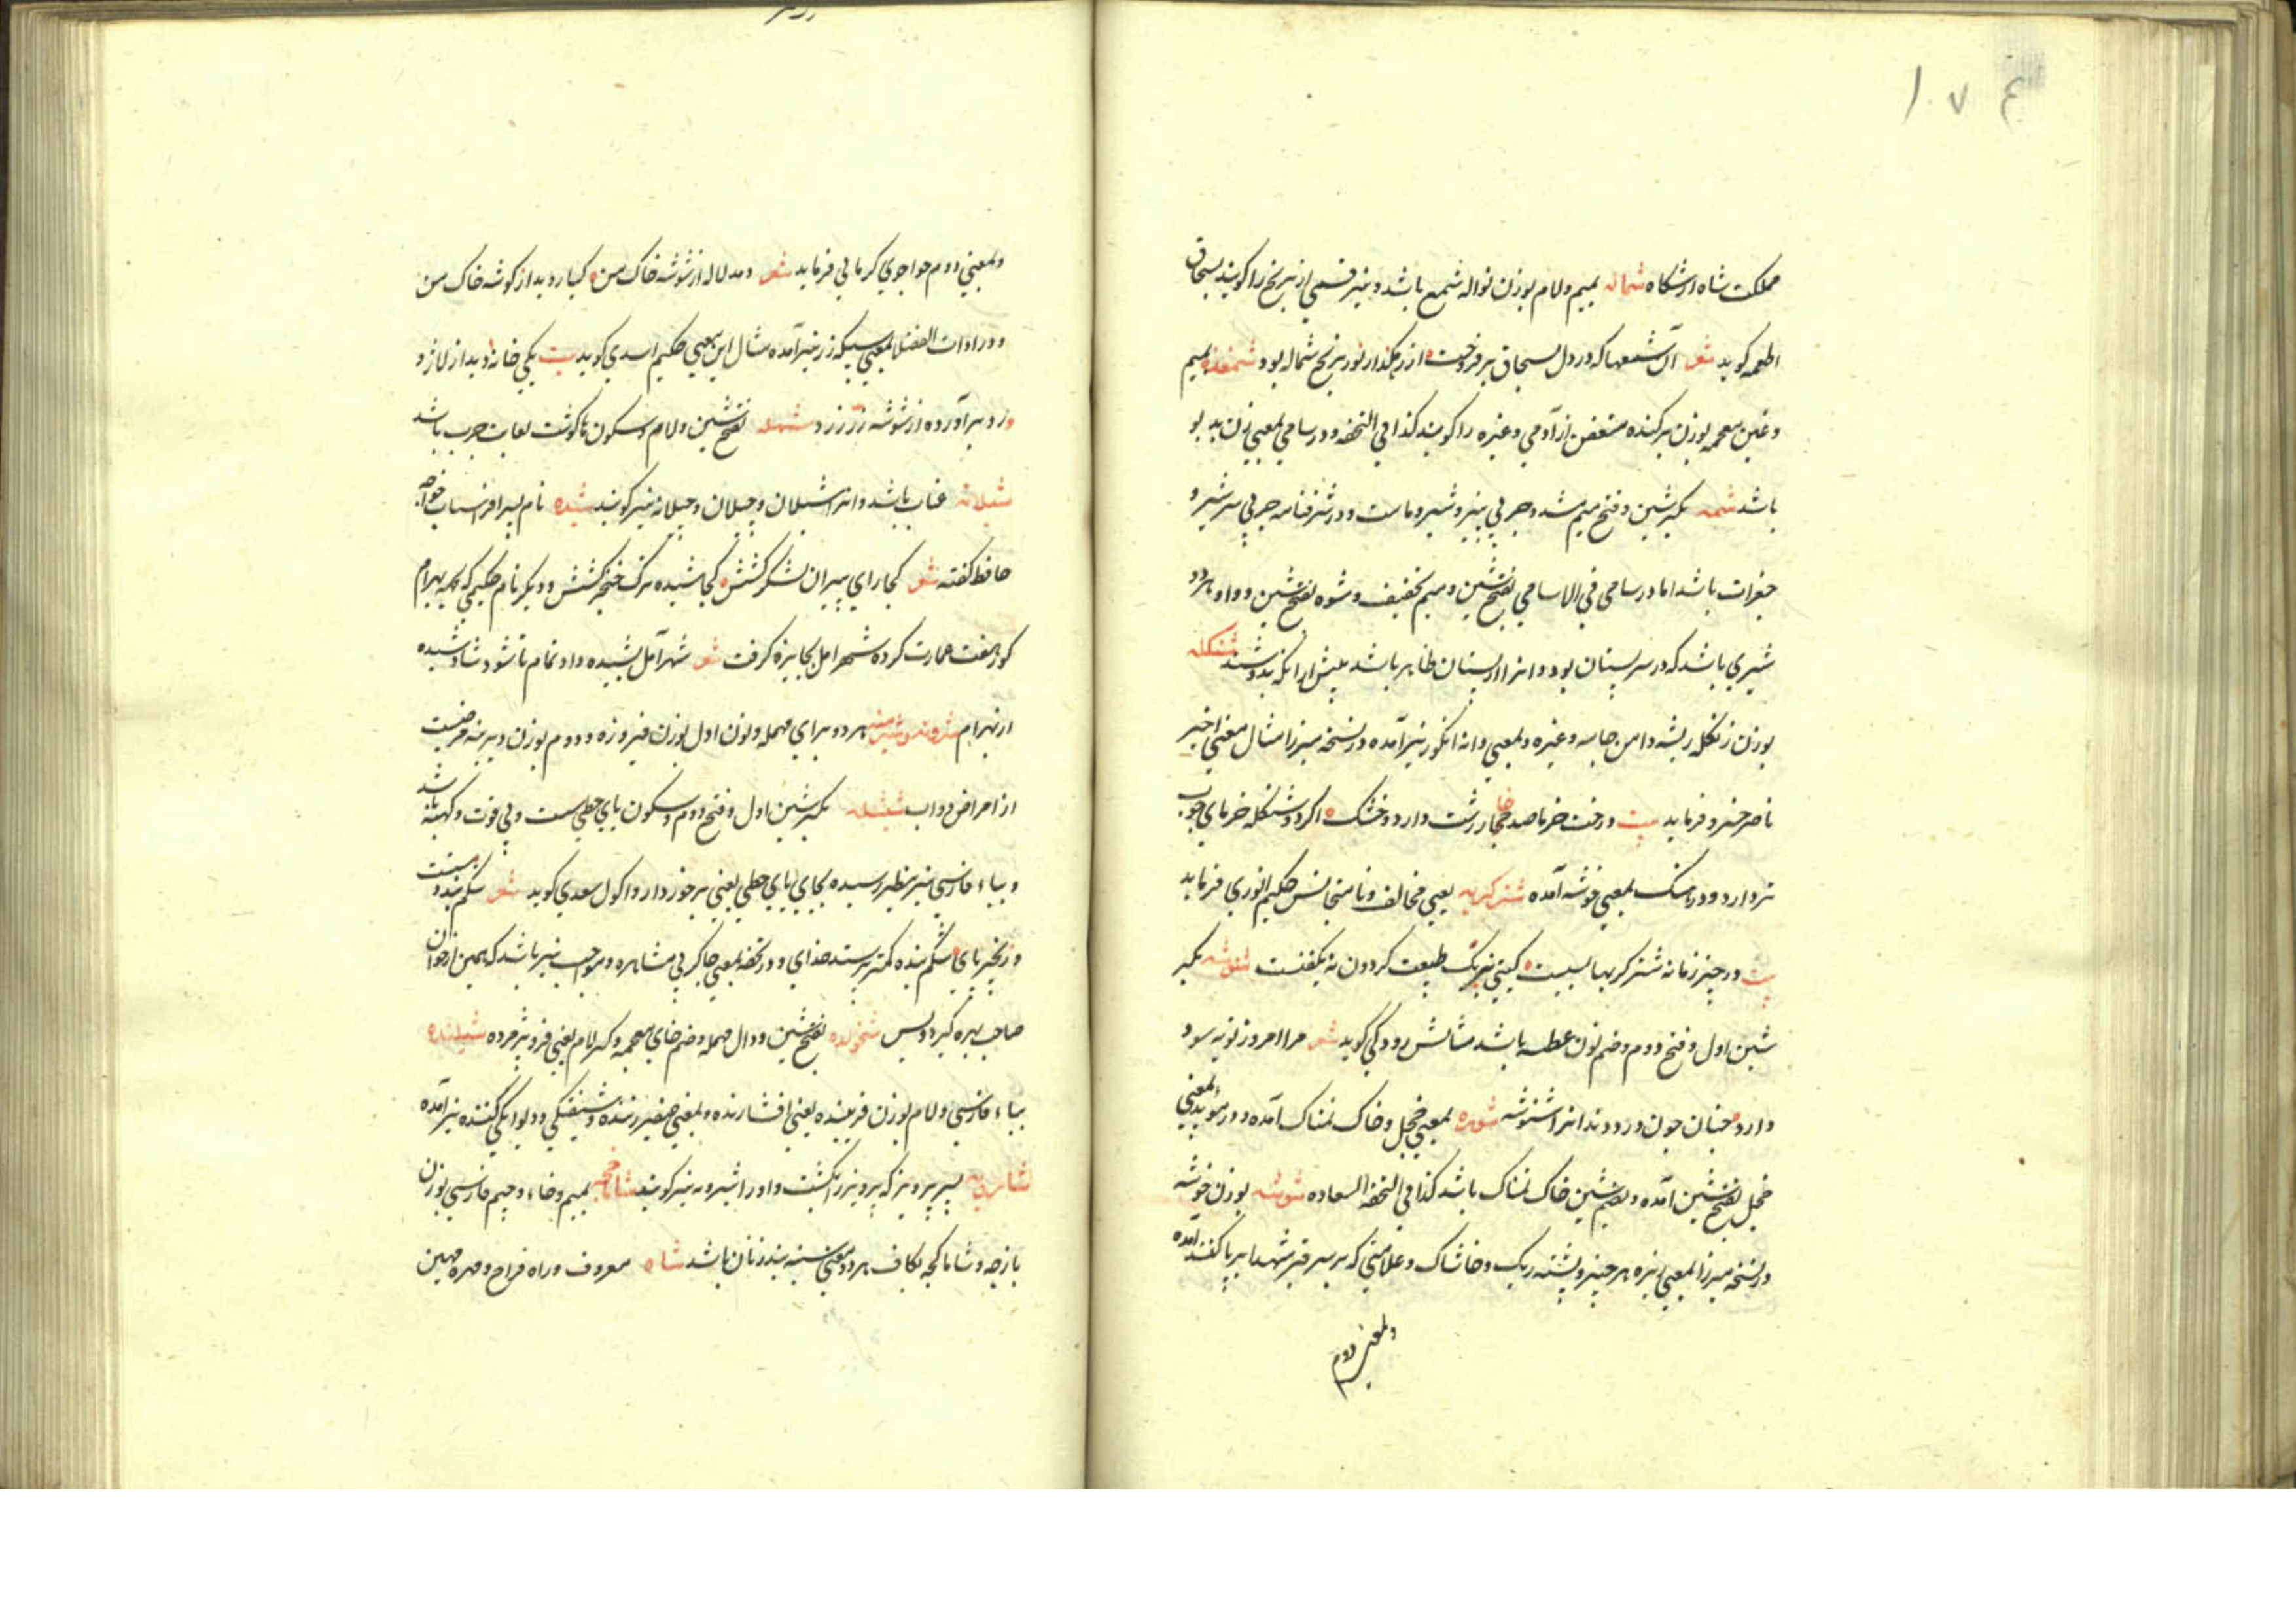 ۱۷۴
مملکت شاه ارشکاه شماله بمیم و لام بوزن نواله شمع باشد و نیز قسمی از برنج را کویند بسحاق
اطعمه کوید شعر آن شمعها که در دل بسحاق برفروخت از رهکذار نور برنج شماله بود شمغنده بمیم
و غین معجمه بوزن برکنده متعفن از آدمی و غیره را کویند کذا فی التحفه و در سامی بمعنی زن بد بو
باشد شمه بکسر شین و فتح میم مشدد چربی پنیر و شیر و ماست و در شرفنامه چربی سر شیر و
جغرات باشد اما در سامی فی الاسامی بفتح شین و میم بتخفیف و شوه بفتح شین و واو هر دو
شیری باشد که در سر پستان بود و انرا از پستان ظاهر باشد پیش از انکه بدوشند شنکله
بوزن زنکله ریشه دامن جامه و غیره و بمعنی دانه انکور نیز آمده در نسخه میرزا مثال معنی اخیر
ناصر خسرو فرماید بیت درخت خرما صد خار زشت دارد و خشک اکر دو شنکله خرمای خوب
تر دارد و در بمعنی خوشه آمده شتر کربه یعنی مخالف و نامتجانس حکیم انوری فرماید
بیت در جنز زمانه شتر کربها بسیست کیتی نیرنک طبیعت کردون نه یکفنست شنوشه بکسر
شین اول و فتح دوم و ضم نون عطسه باشد مثالش رودکی کوید شعر مرا امروز توبه سود
دارد چنان چون دردمندانرا شنوشه شوره بمعنی خجل و خاک نمناک آمده و در موید بمعنی
خجل بفتح شین آمده و بضم شین خاک نمناک باشد کذا فی التحفه السعاده شوشه بوزن خوشه
در نسخه میرزا بمعنی ریزه هر چیز و پشته ریک و خاشاک و علامتی که بر سر قبر شهدا بر پا کنند آمده
و بمعنی دوم
و بمعنی دوم خواجوی کرمانی فرماید شعر دمد لاله از شوشه خاک من کیا روید از کوشه خاک من
و در ادات الفضلا بمعنی سبیکه زر نیز آمده مثال این معنی حکیم اسدی کوید بیت یکی خانه دید از لاژورد
برآورده از شوشه زر زرد شهله بفتح شین و لام و سکون ها کوشت بغایت چرب باشد
شیلانه عناب باشد و انرا شیلان و جیلان و جیلانه نیز کویند شیده نام پسر افراسیاب خواجه
حافظ کفته شعر کجا رای پیران لشکر کشش کجا شیده ترک خنجر کشش و دیکر نام حکیمی که بهر بهرام
کور هفت عمارت کرده شهر امل بجایزه کرفت شعر شهر آمل بشیده داد تمام تا شود شاد شیده
از بهرام هر دو برای مهمله و نون اول بوزن فیروزه و دوم بوزن دیرینه مرضیست
از امراض دواب شیشله بکسر شین اول و فتح دوم و سکون یای حطی سست و بی قوت و کهنه باشد
و بباء فارسی نیز بنظر رسیده بجای یای حطی یعنی پرخور دار و اکول سعدی کوید شعر شکم بند دست
و زنجیر پای شکم بنده کمتر پرستد خدای و در تحفه بمعنی چاکر بی مشاهره و مواجب نیز باشد که همین از خوان
صاحب بهره کیرد و بس شخولده بفتح شین و دال مهمله و ضم خای معجمه و کسر لام یعنی فرو پژمرده شپلنده
بباء فارسی و لام بوزن فریبنده یعنی افشارنده و بمعنی صفیر زننده و شیفتکی و دیوانکی کننده نیز آمده
پسر پرویز که پرویز را بکشت و او را شیرویه نیز کویند شاماخچه بمیم و خاء و جیم فارسی بوزن
بازچه و شاماکچه بکاف هر دو بمعنی سینه بند زنان باشد شاه معروف و راه فراخ و مهره مهین